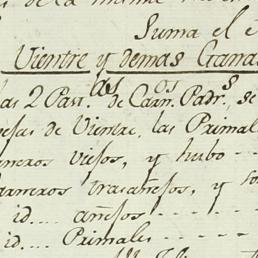 de la misma
Suma el
Vientre y demas Gana
las 2 Past.as de Carn.os Padr.s, se
de Vientre, las Primal
neros viejos, y hubo
arneros trasañejos, y
id.... añejos
id.... Primales